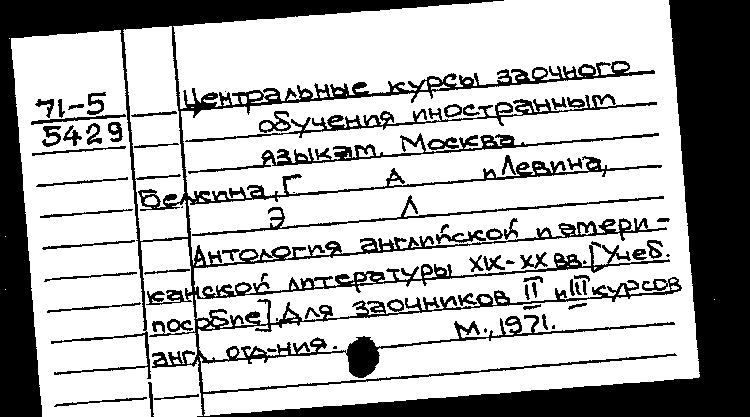 71-5
5429
Центральные курсы заочного
обучения иностранным
языкам. Москва.
Белкина, Г А и Левина,
Э Л
Антология английской и амери-
канской литературы XIX-XX вв. [Учеб.
пособие]. Для заочников II и III курсов
англ. отд-ния. М., 1971.